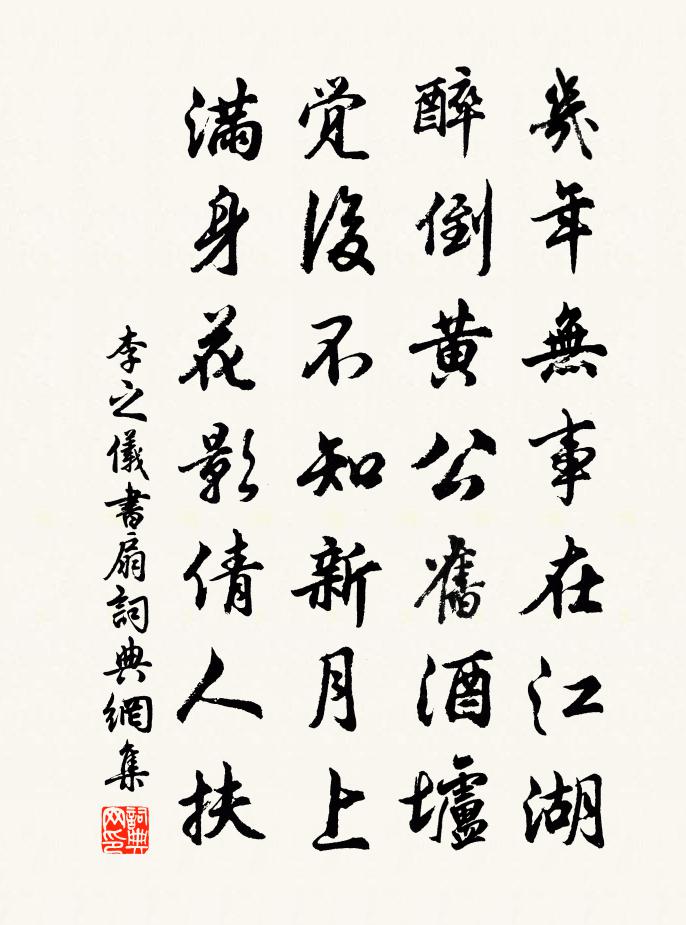 幾年無事在江湖
醉倒黄公舊酒壚
覺後不知新月上
滿身花影倩人扶
李之儀書扇詞典網集
詞典网印